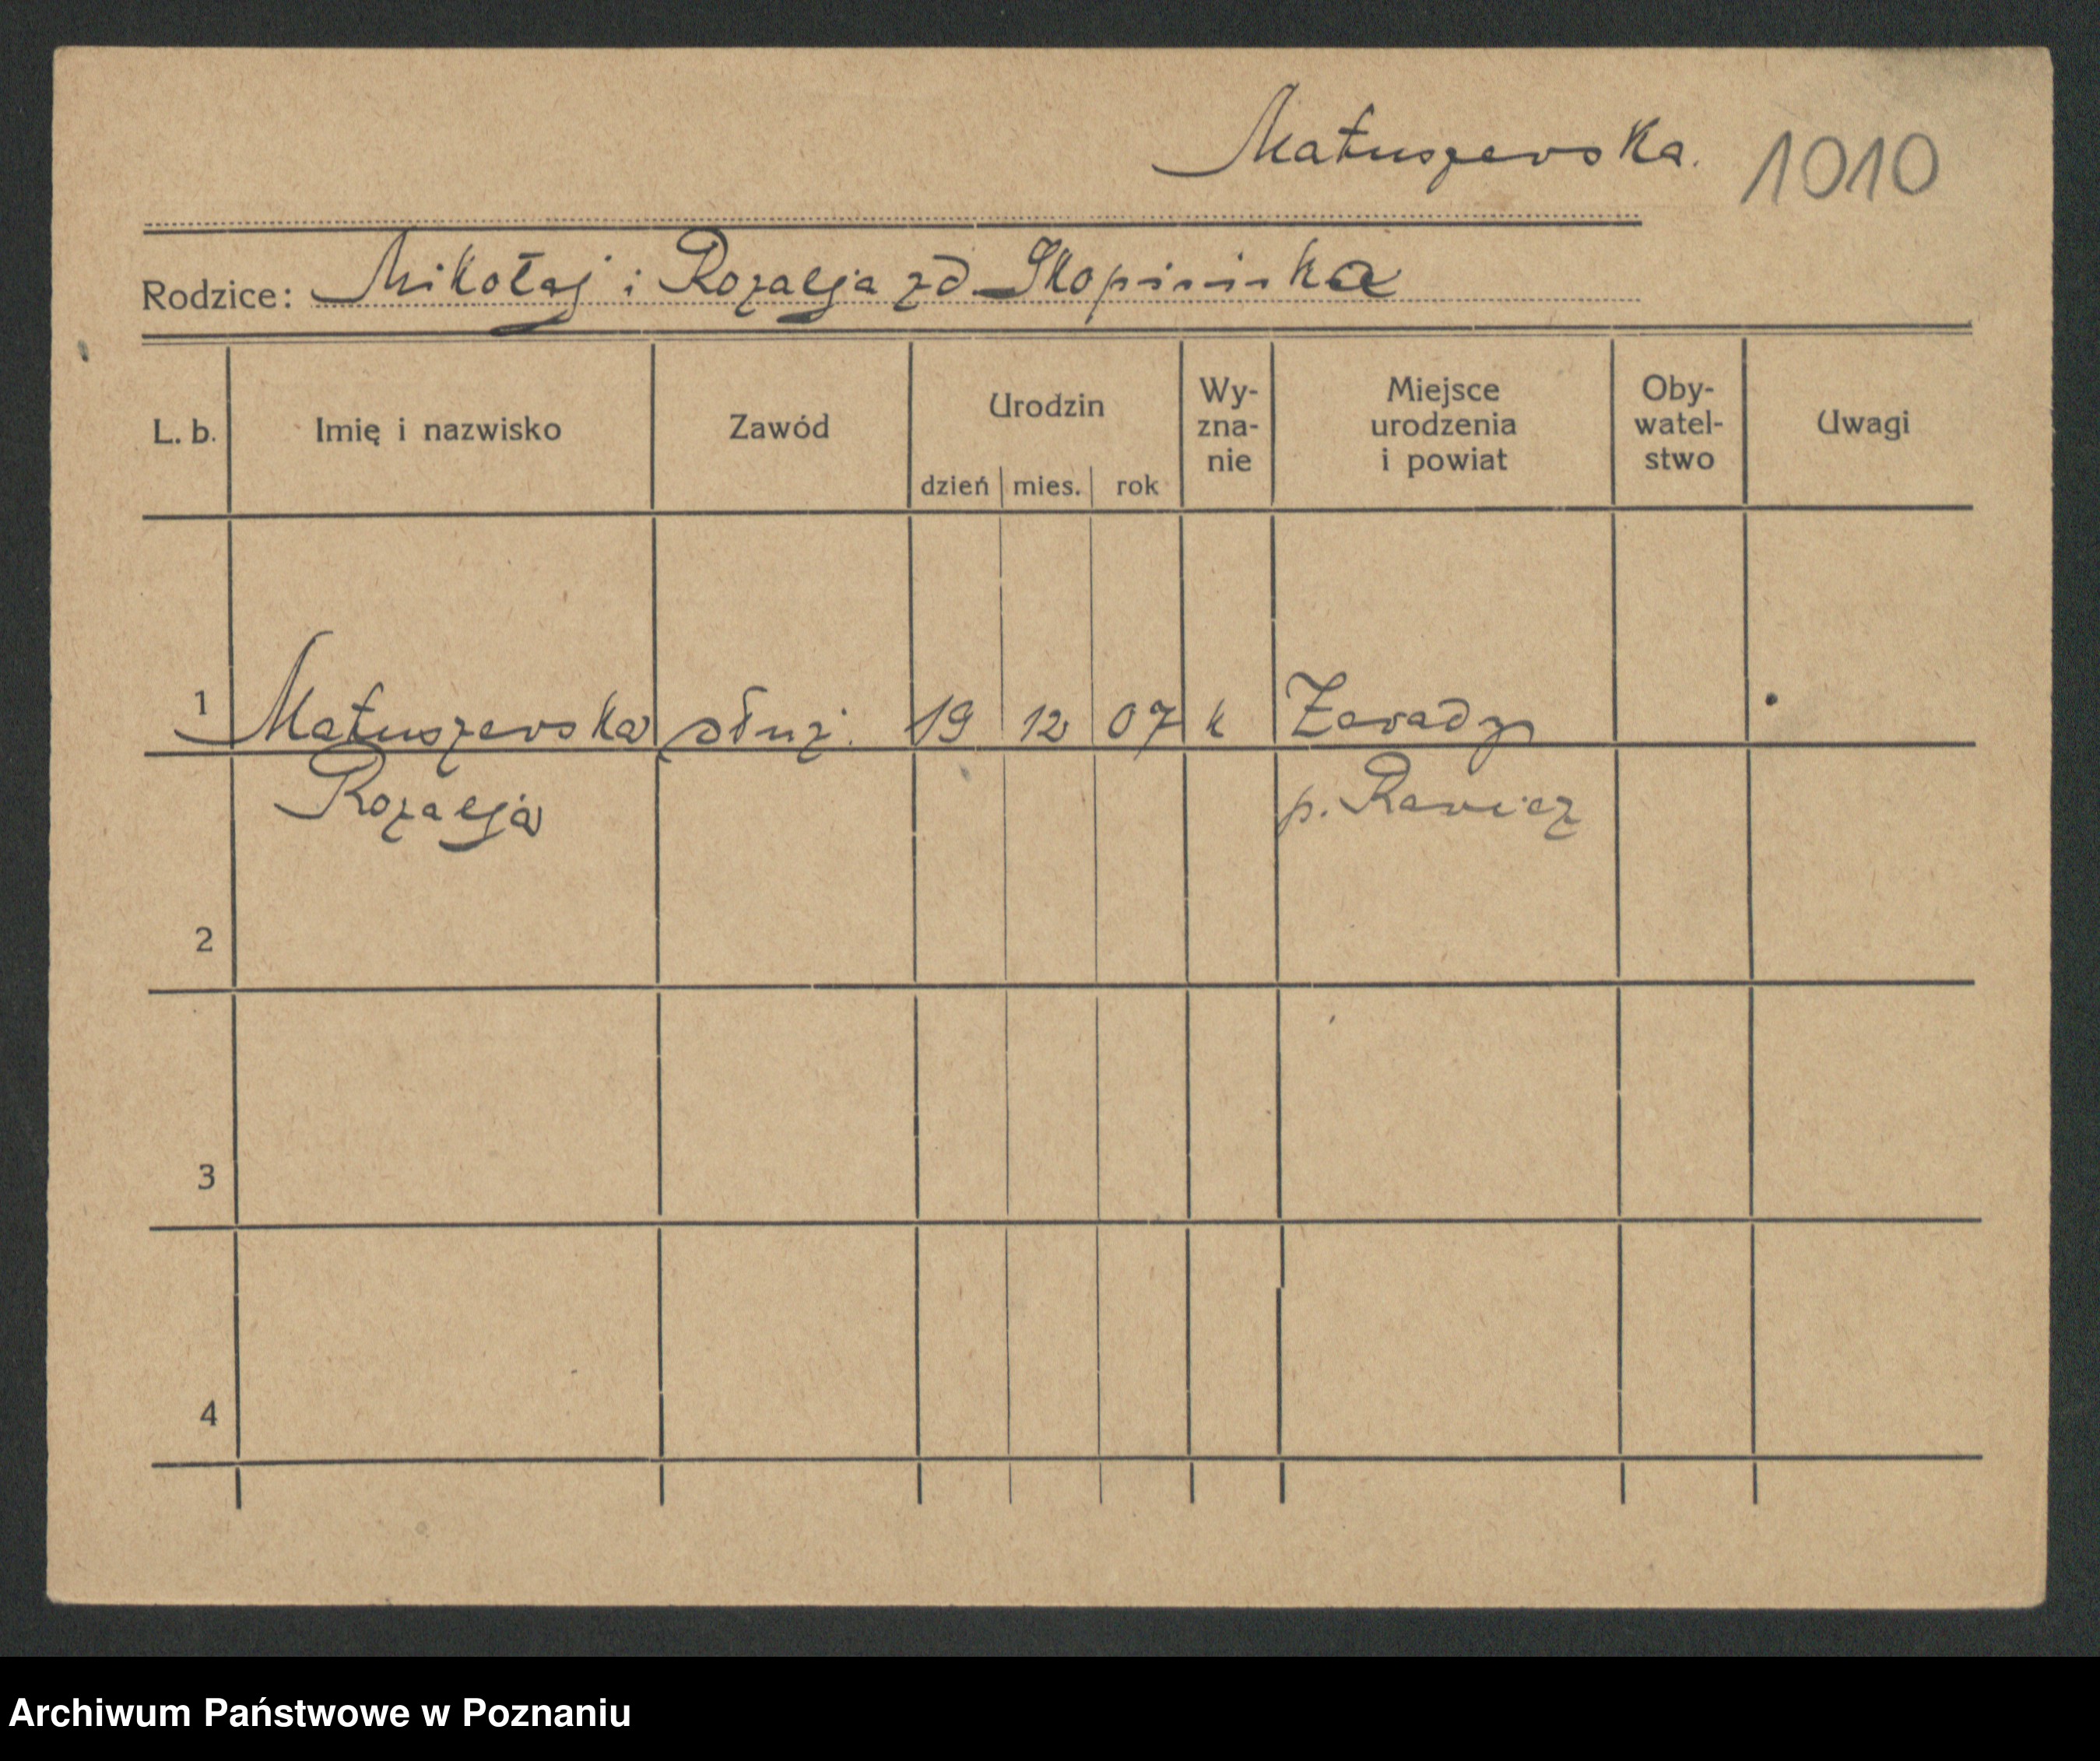 Matuszewska. 1010
Rodzice: Mikołaj i Rozalja zd Skopinska
L. b. Imię i nazwisko Zawód Urodzin Wy- Miejsce Oby- Uwagi
zna- urodzenia watel-
nie i powiat stwo
dzień mies. rok
1 Matuszewska służ. 19 12 07 k Zawady
Rozalja p. Rawicz
2
3
4
Archiwum Państwowe w Poznaniu